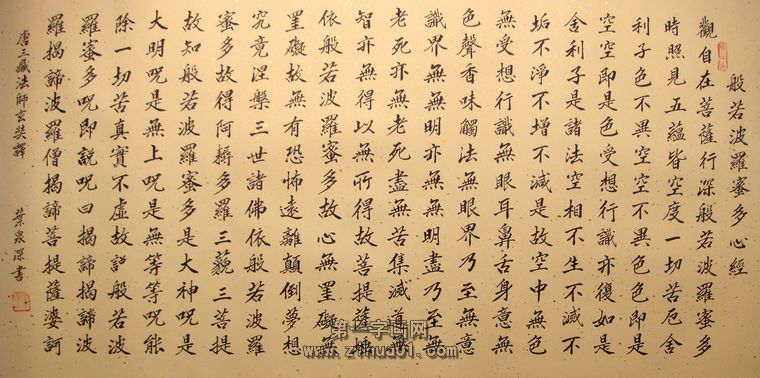 般若波羅蜜多心經
觀自在菩薩行深般若波羅蜜多
時照見五蘊皆空度一切苦厄舍
利子色不異空空不異色色即是
空空即是色受想行識亦復如是
舍利子是諸法空相不生不滅不
垢不淨不增不減是故空中無色
無受想行識無眼耳鼻舌身意無
色聲香味觸法無眼界乃至無意
識界無無明亦無無明盡乃至無
老死亦無老死盡無苦集滅道無
智亦無得以無所得故菩提薩埵
依般若波羅蜜多故心無罣礙無
罣礙故無有恐怖遠離顛倒夢想
究竟涅槃三世諸佛依般若波羅
蜜多故得阿耨多羅三藐三菩提
故知般若波羅蜜多是大神咒是
大明咒是無上咒是無等等咒能
除一切苦真實不虛故說般若波
羅蜜多咒即說咒曰揭諦揭諦波
羅揭諦波羅僧揭諦菩提薩婆訶
唐三藏法師玄奘譯
葉泉深書
第一字画网
www.zihua01.com